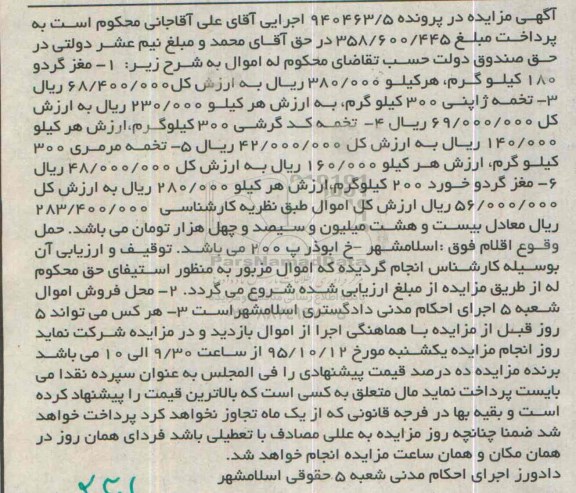 آگهی مزایده در پرونده ۹۴۰۴۶۳/۵ اجرایی آقای علی آقاجانی محکوم است به
پرداخت مبلغ ۳۵۸/۶۰۰/۴۴۵ در حق آقای محمد و مبلغ نیم عشر دولتی در
حق صندوق دولت حسب تقاضای محکوم له اموال به شرح زیر: ۱- مغز گردو
۱۸۰ کیلو گرم، هرکیلو ۳۸۰/۰۰۰ ریال به ارزش کل ۶۸/۴۰۰/۰۰۰ ریال
۳- تخمه ژاپنی ۳۰۰ کیلو گرم، به ارزش هر کیلو ۲۳۰/۰۰۰ ریال به ارزش
کل ۶۹/۰۰۰/۰۰۰ ریال ۴- تخمه کد گرشی ۳۰۰ کیلوگرم،ارزش هر کیلو
۱۴۰/۰۰۰ ریال به ارزش کل ۴۲/۰۰۰/۰۰۰ ریال ۵- تخمه مرمری ۳۰۰
کیلو گرم، ارزش هر کیلو ۱۶۰/۰۰۰ ریال به ارزش کل ۴۸/۰۰۰/۰۰۰ ریال
۶- مغز گردو خورد ۲۰۰ کیلوگرم ارزش هر کیلو ۲۸۰/۰۰۰ ریال به ارزش کل
۵۶/۰۰۰/۰۰۰ ریال ارزش کل اموال طبق نظریه کارشناسی ۲۸۳/۴۰۰/۰۰۰
ریال معادل بیست و هشت میلیون و سیصد و چهل هزار تومان می باشد. حمل
وقوع اقلام فوق :اسلامشهر -خ ابوذر پ ۲۰۰ می باشد. توقیف و ارزیابی آن
بوسیله کارشناس انجام گردیده که اموال مزبور به منظور استیفای حق محکوم
له از طریق مزایده از مبلغ ارزیابی شده شروع می گردد. ۲- محل فروش اموال
شعبه ۵ اجرای احکام مدنی دادگستری اسلامشهراست ۳- هر کس می تواند ۵
روز قبل از مزایده با هماهنگی اجرا از اموال بازدید و در مزایده شرکت نماید
روز انجام مزایده یکشنبه مورخ ۹۵/۱۰/۱۲ از ساعت ۹/۳۰ الی ۱۰ می باشد
برنده مزایده ده درصد قیمت پیشنهادی را فی المجلس به عنوان سپرده نقدا می
بایست پرداخت نماید مال متعلق به کسی است که بالاترین قیمت را پیشنهاد کرده
است و بقیه بها در فرجه قانونی که از یک ماه تجاوز نخواهد کرد پرداخت خواهد
شد ضمنا چنانچه روز مزایده به عللی مصادف با تعطیلی باشد فردای همان روز در
همان مکان و همان ساعت مزایده انجام خواهد شد.
دادورز اجرای احکام مدنی شعبه ۵ حقوقی اسلامشهر